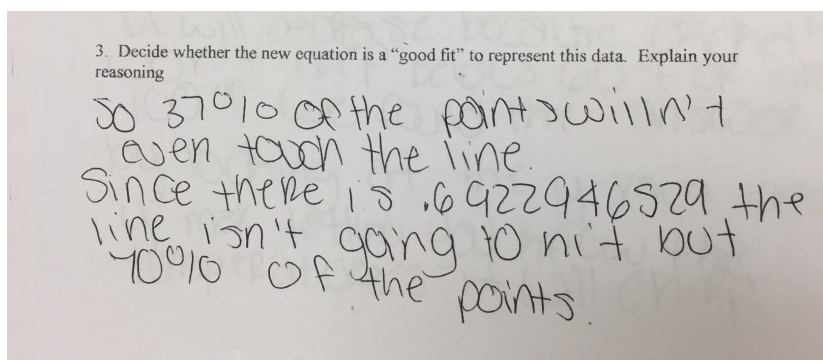 3. Decide whether the new equation is a “good fit” to represent this data. Explain your
reasoning
So 37% of the points willn't
even touch the line.
Since there is .6922946529 the
line isn't going to hit but
70% of the points.